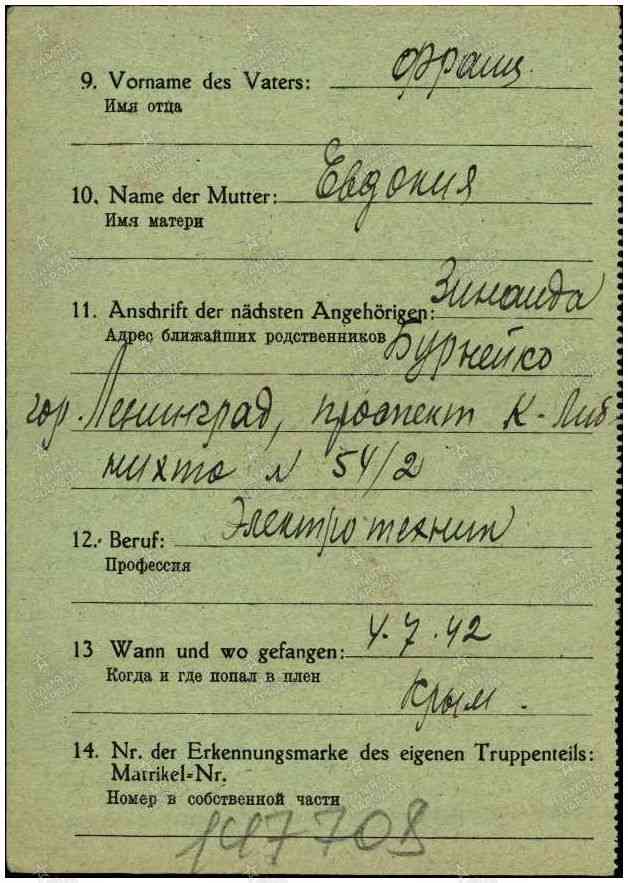 9. Vorname des Vaters: Франц.
Имя отца
10. Name der Mutter: Евдокия
Имя матери
11. Anschrift der nächsten Angehörigen: Зинаида
Адрес ближайших родственников Бурнейко
гор. Ленинград, проспект К-Либ
нихта № 54/2
12. Beruf: Электротехник
Профессия
13 Wann und wo gefangen: 4.7.42
Когда и где попал в плен
Крым.
14. Nr. der Erkennungsmarke des eigenen Truppenteils:
Matrikel=Nr.
Номер в собственной части
147708